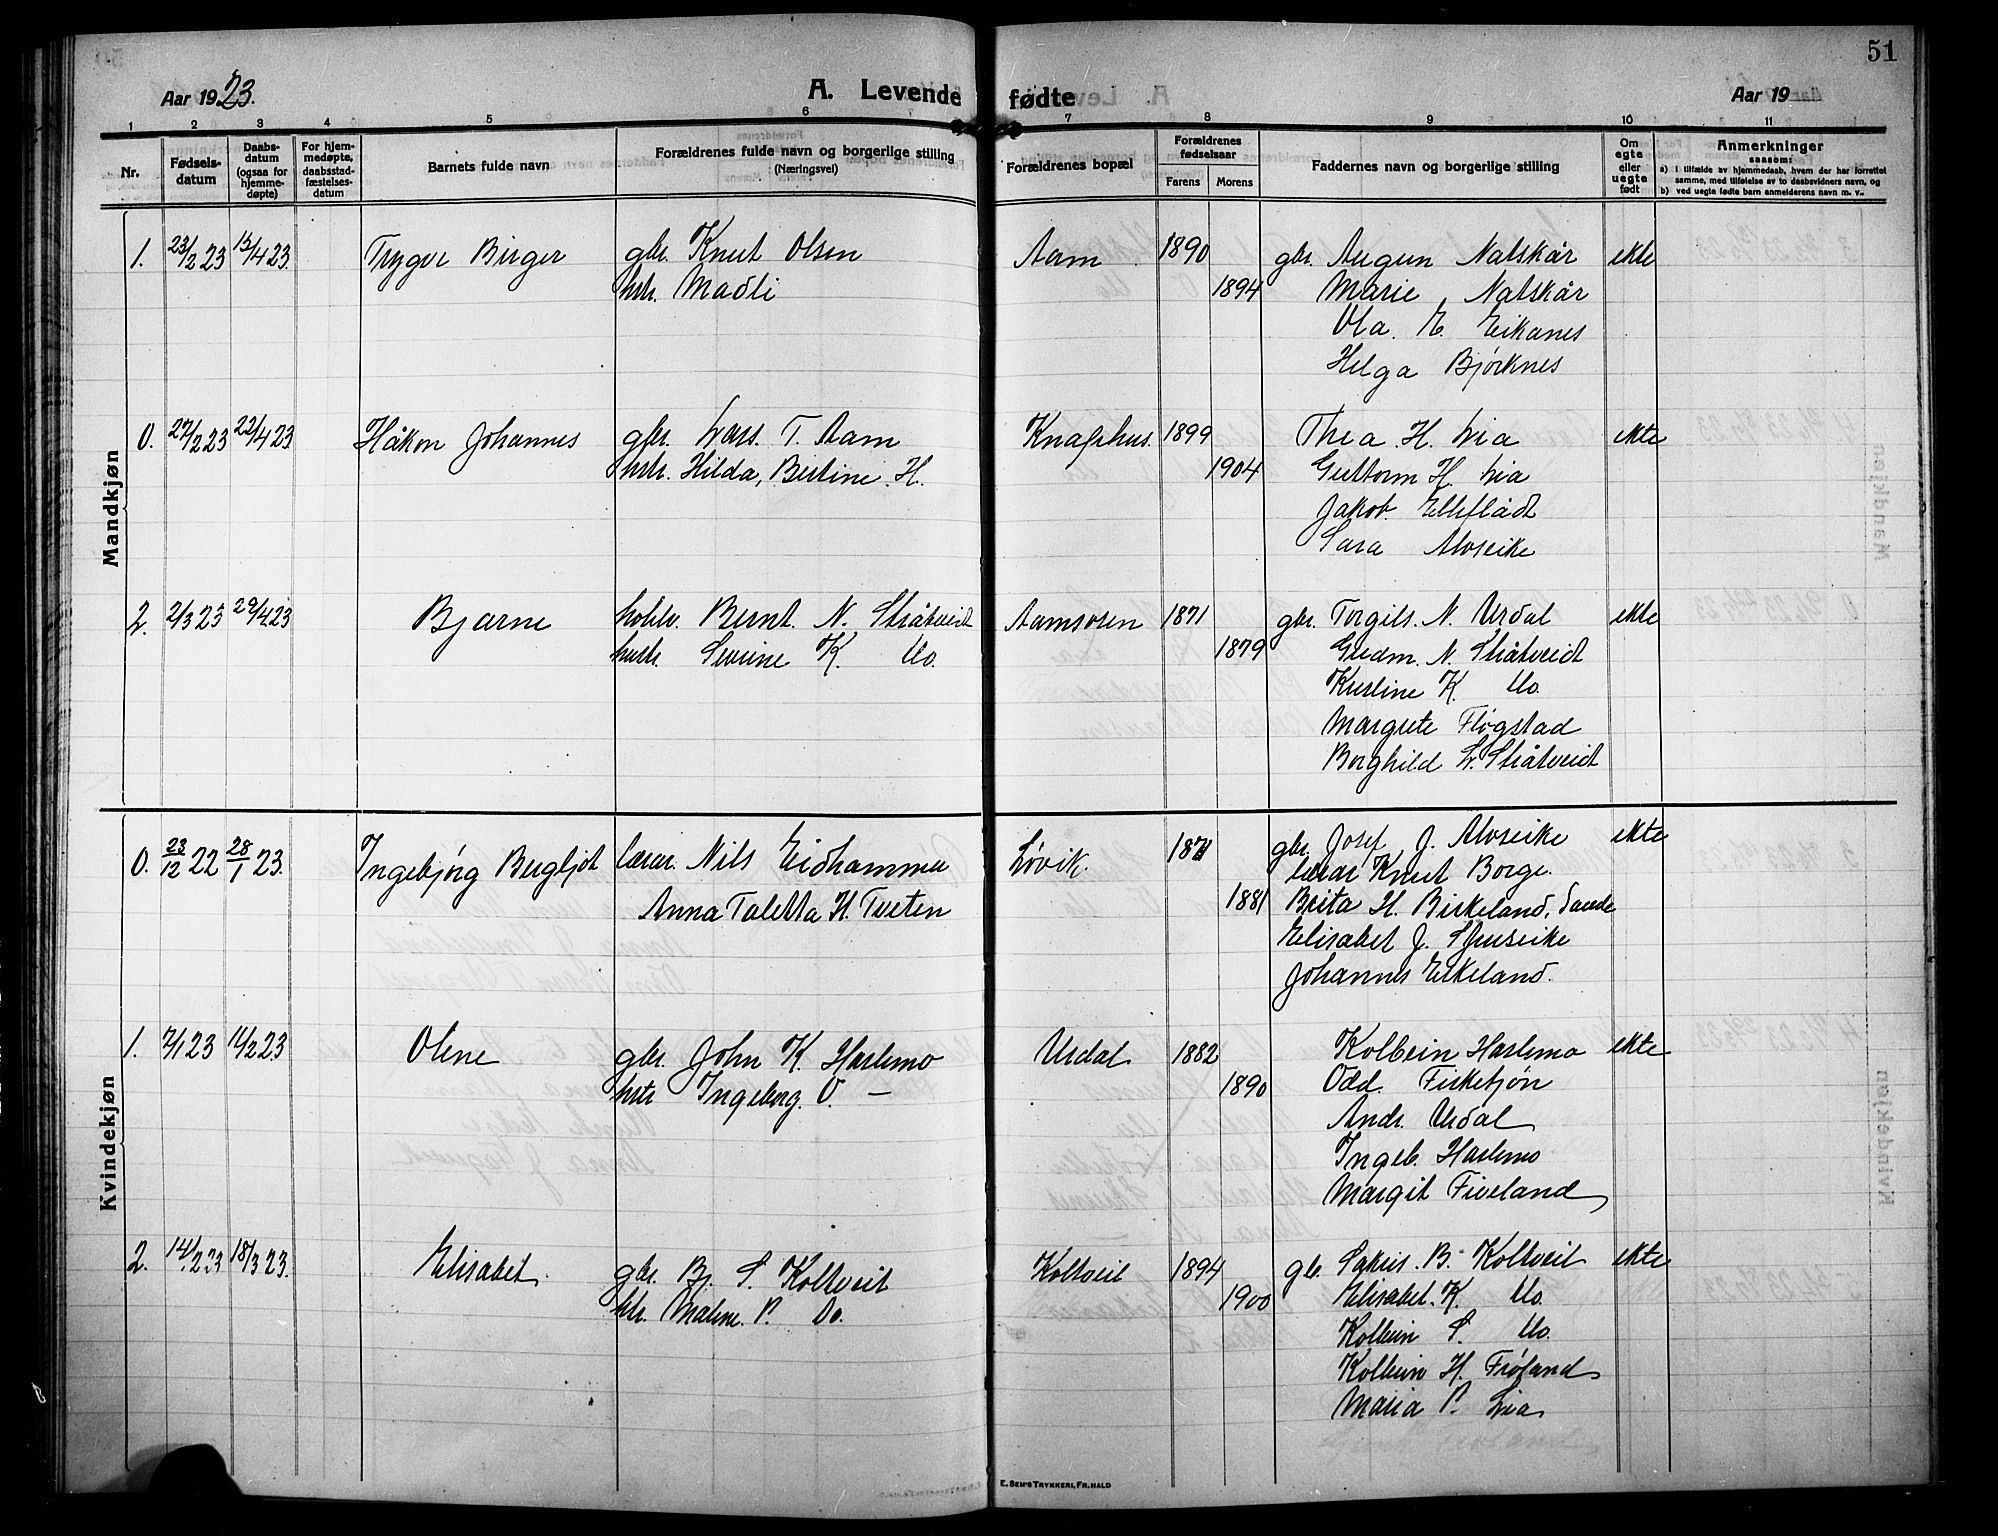 51
Aar 1923.
A. Levende fødte
Aar 19
1 2 3 4 5 6 7 8 9 10 11
Nr.
Fødselsdatum
Daabsdatum (ogsaa for hjemmedøpte)
For hjemmedøpte, daabsstadfæstelsesdatum
Barnets fulde navn
Forældrenes fulde navn og borgerlige stilling
(Næringsvei)
Forældrenes bopæl
Forældrenes fødselsaar
Farens
Morens
Faddernes navn og borgerlige stilling
Om egte eller uegte født
Anmerkninger
saasom:
a) i tilfælde av hjemmedaab, hvem der har forrettet samme, med tilføielse av to daabsvidners navn, og
b) ved uegte fødte barn anmelderens navn m. v.
Mandkjøn
1. 23/2 23 15/4 23. Trygve Birger gbr. Knut Olsen Aam 1890 gbr. Augun Natskår ekte
hstr. Madli 1894 Marie Natskår
Ola. E. Eikanes
Helga Bjørknes
0. 27/2 23 22/4 23 Håkon Johannes gbr. Lars. T. Aam Knaphus. 1899 Thea H. Lia ekte
hstr. Hilda, Bertine. H. 1904 Guttorm H. Lia
Jakob. Ellefladt
Sara Alvseike
2. 2/3 23 29/4 23 Bjarne Bernt. N. Ståtveidt Aamsosen 1871 gbr. Torgils. N. Urdal ekte
hustr. Severine K. Do. 1879 Gudm. N. Ståtveidt
Kristine K. Do.
Margrete Fløgstad
Borghild L. Ståtveidt
Kvindekjøn
0. 23/12 22 28/1 23. Ingebjørg Bergljot lærar. Nils Eidhammer Løvik. 1871 gbr. Josef J. Alvseike ekte
Anna Taletta H. Tveten 1881 lærar Knut Borge.
Brita H. Birkeland, Sande
Elisabet J. Øfuseike
Johannes Eikeland.
1. 7/1 23 11/2 23 Olene gbr. John K. Haslemo Urdal 1882 Kolbein Haslemo ekte
hstr Ingeborg. O. — 1890 Odd. Fisketjøn
Andr. Urdal
Ingeb. Haslemo
Margit Fiveland
2. 14/2 23 18/3 23. Elisabet gbr. Bj. S. Koltveit Koltveit 1894 gb. Sakris. B. Koltveit ekte
hstr. Malene. P. Do. 1900 Elisabet. K. Do.
Kolbein S. Do.
Kolbein H. Frøland
Maria P. Lia
E. Sem's Trykkeri, Fr.hald